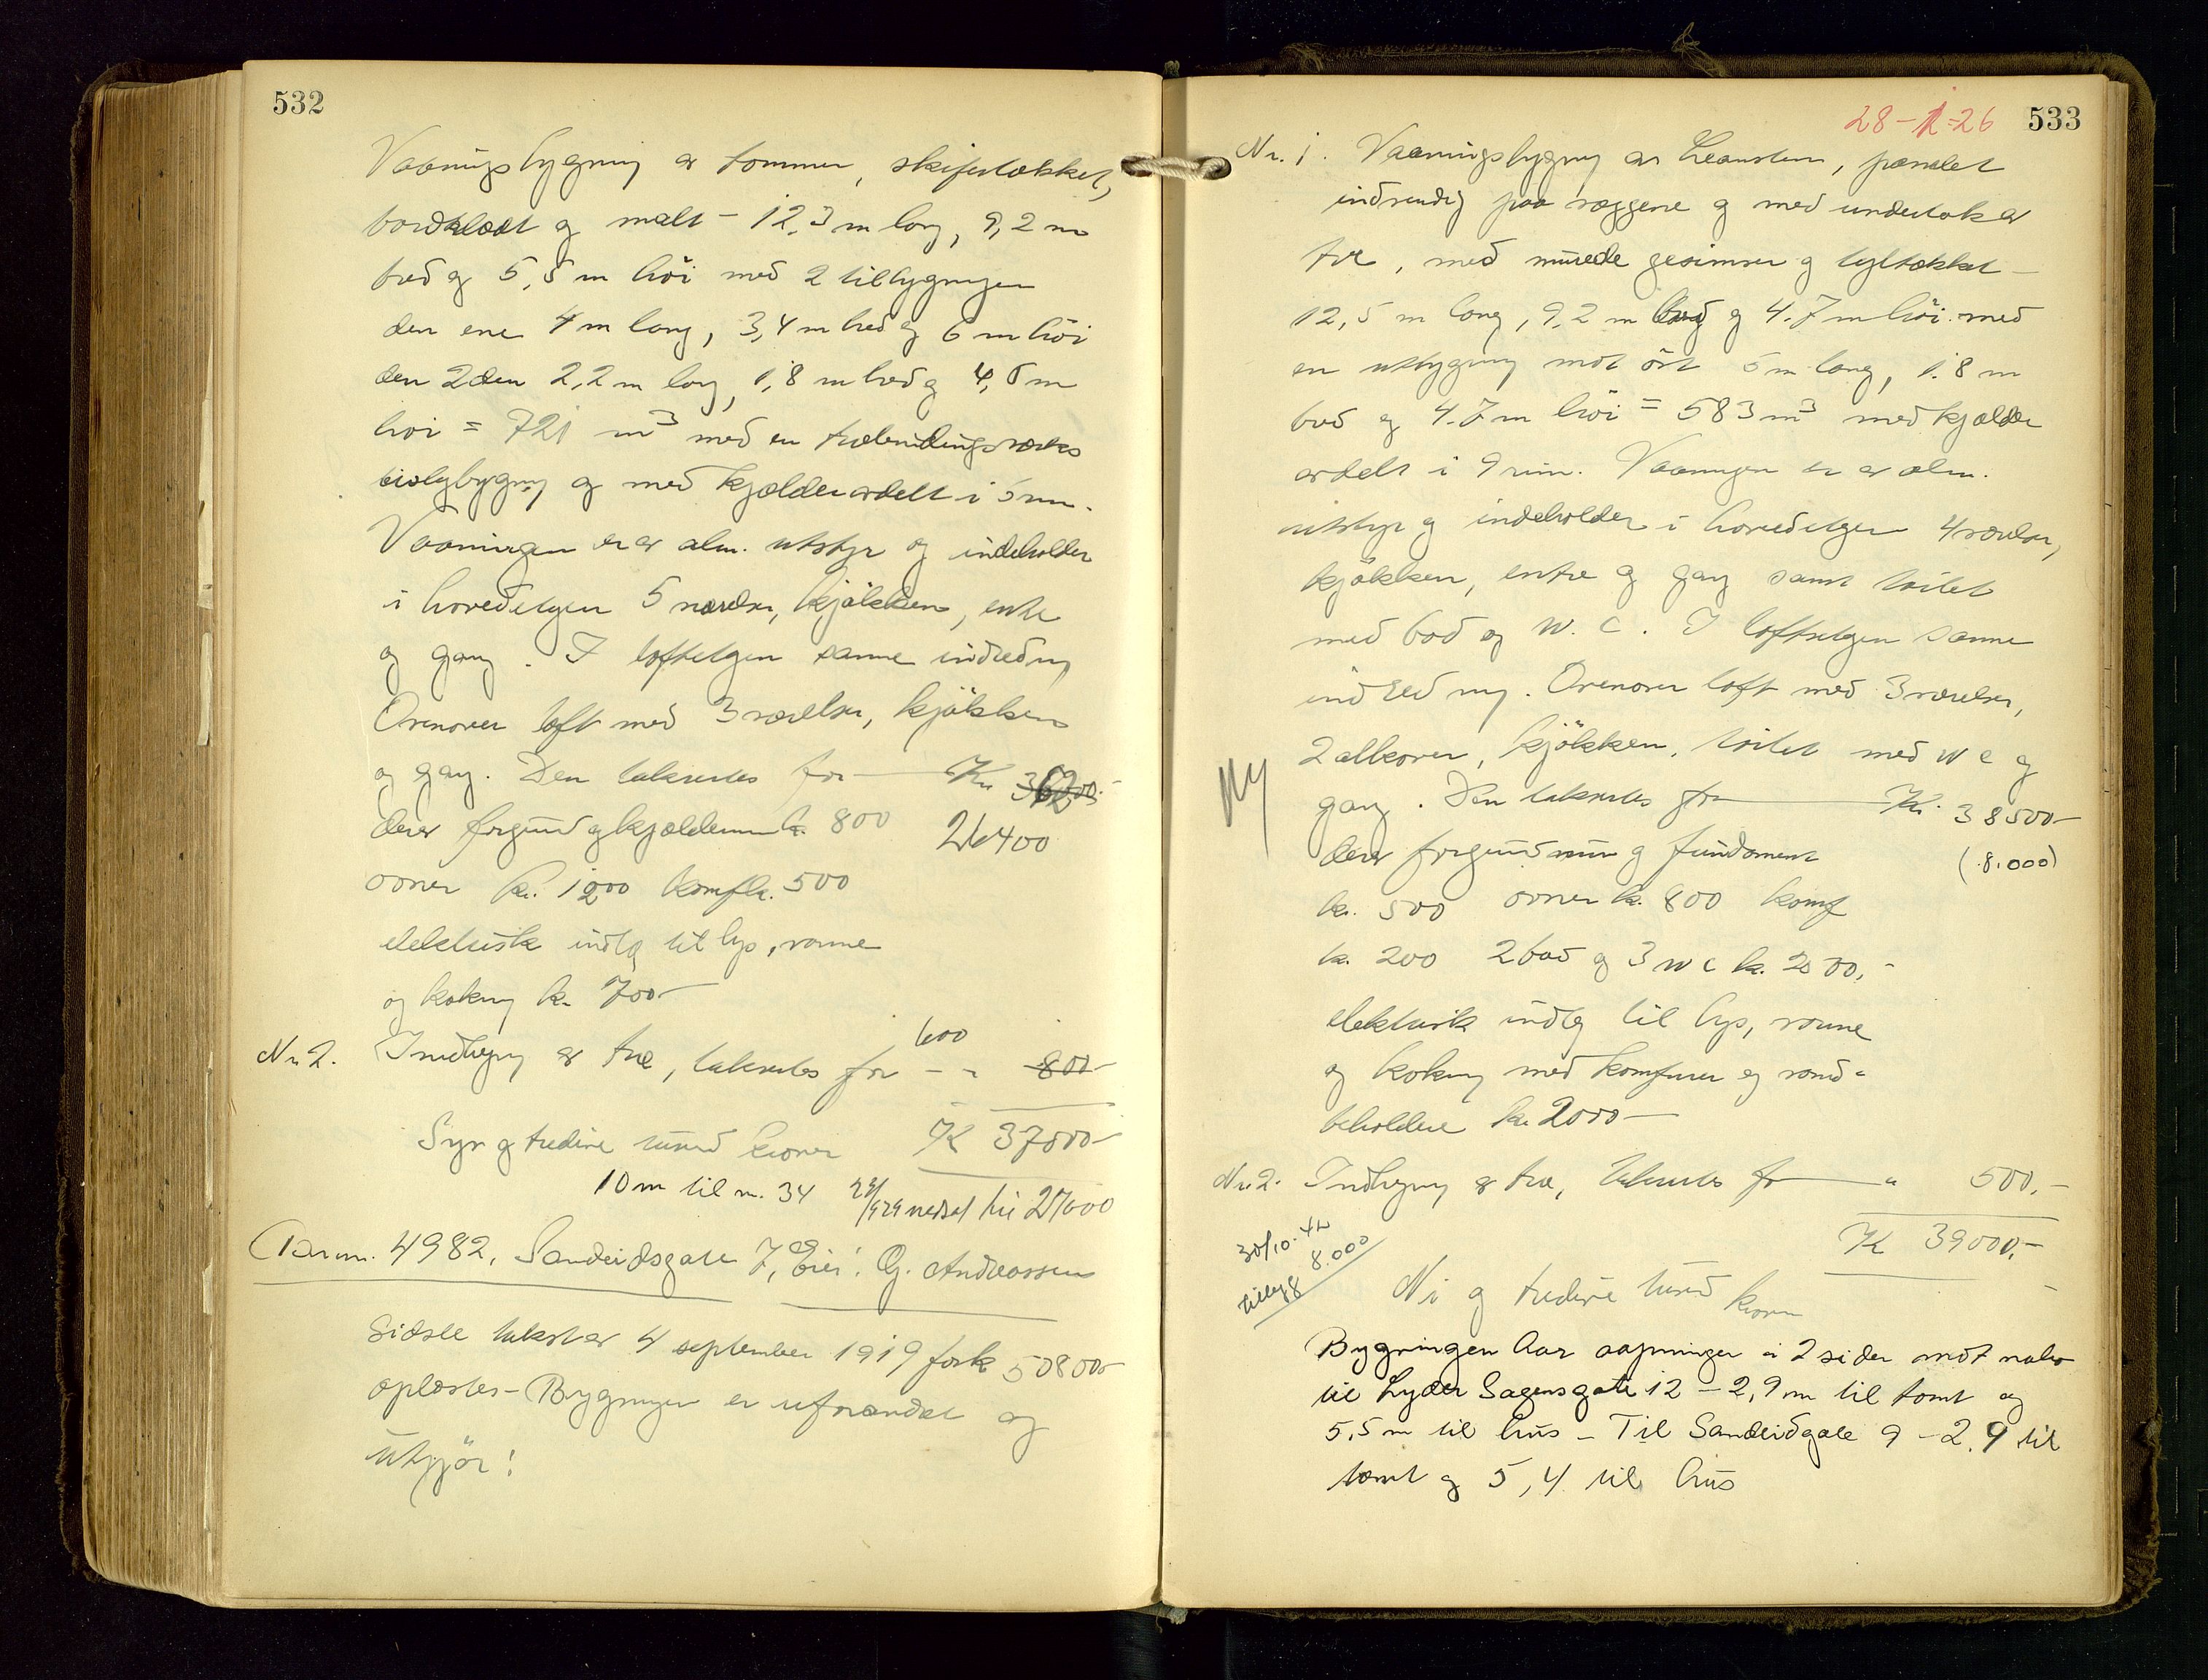 532
Vaaningsbygning av tømmer, skifertækket,
bordklædt og malt – 12,3 m lang, 9,2 m
bred og 5,5 m höi med 2 tilbygninger
den ene 4 m lang, 3,4 m bred og 6 m höi
den 2den 2,2 m lang, 1,8 m bred og 4,5 m
höi = 721 m³ med en trebindingsverks
bislagbygning og med kjælder avdelt i 5 rum.
Vaaningen er av alm. utstyr og indeholder
i hovedetagen 5 værelser, kjökken, entre
og gang. I loftetagen samme indredning
Ovenover loft med 3 værelser, kjökken
og gang. Den takseres for Kr
derav for grund og kjældermur kr. 800 26400
ovner kr. 1200 komf kr. 500
elektrisk indlæg til lys, varme
og kokning kr. 700–
600
Nr 2. Indhegning av træ, takseres for – " 800–
Syv og tredive tusind kroner Kr 37000–
10 m til nr. 34 nedsat til 27000
Bar nr. 4982, Sandeidsgate 7, Eier: Og. Andreassen
Sidste takst av 4 september 1919 for k 50800–
oplæstes – Bygningen er uforandret og
utgjör:
28-1-26 533
Nr. 1. Vaaningsbygning av Leansten, panelet
indvendig paa væggene og med undertak av
træ, med murede gesimser og tegltækket –
12,5 m lang, 9,2 m bred og 4.7 m höi med
en utbygning mot öst 5 m lang, 1.8 m
bred og 4.7 m höi = 583 m³ med kjælder
avdelt i 9 rum. Vaaningen er av alm.
utstyr og indeholder i hovedetagen 4 værelser,
kjökken, entre og gang samt toilet
med bad og W. C. I loftsetagen samme
indredning. Ovenover loft med 3 værelser,
2 alkover, kjökken, toilet med W C og
Ny
gang. Den takseres for Kr. 38500–
derav for grundmur og fundament (8.000)
kr. 500 ovner kr. 800 komf
kr. 200 2 bad og 3 W C kr. 2500,–
elektrisk indlæg til lys, varme
og kokning med komfurer og vand-
beholdere kr 2000–
Nr. 2. Indhegning av træ, takseres for " 500,–
Kr 39000,–
30/10.42
8.000
tillegg
Ni og tredive tusind kroner
Bygningen har aapninger i 2 sider mot nabo
til Lyder Sagensgate 12 – 2,9 m til tomt og
5,5 m til hus – Til Sandeidgate 9 – 2.9 til
tomt og 5,4 til hus